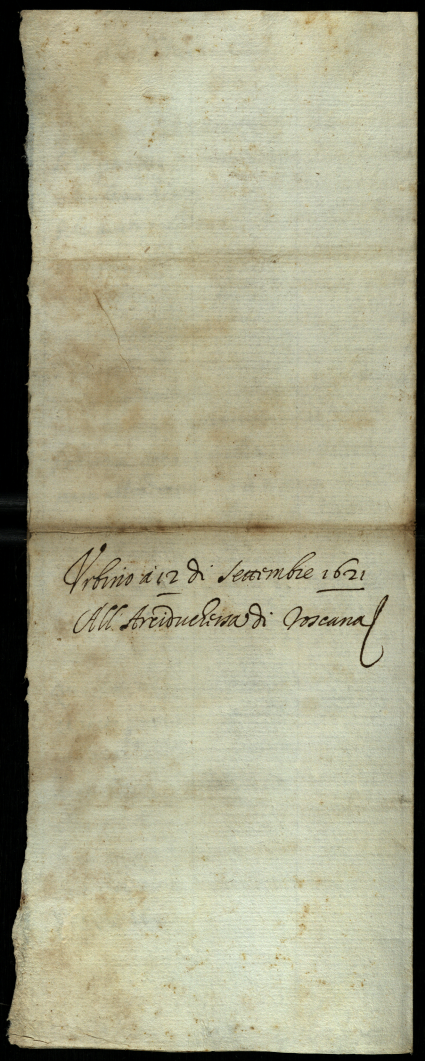 Urbino à 12 di Settembre 1621
All. Arciduchessa di Toscana